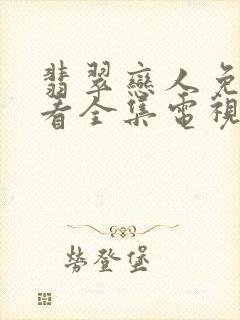 翡翠戀人免
看全集電視
勞登堡